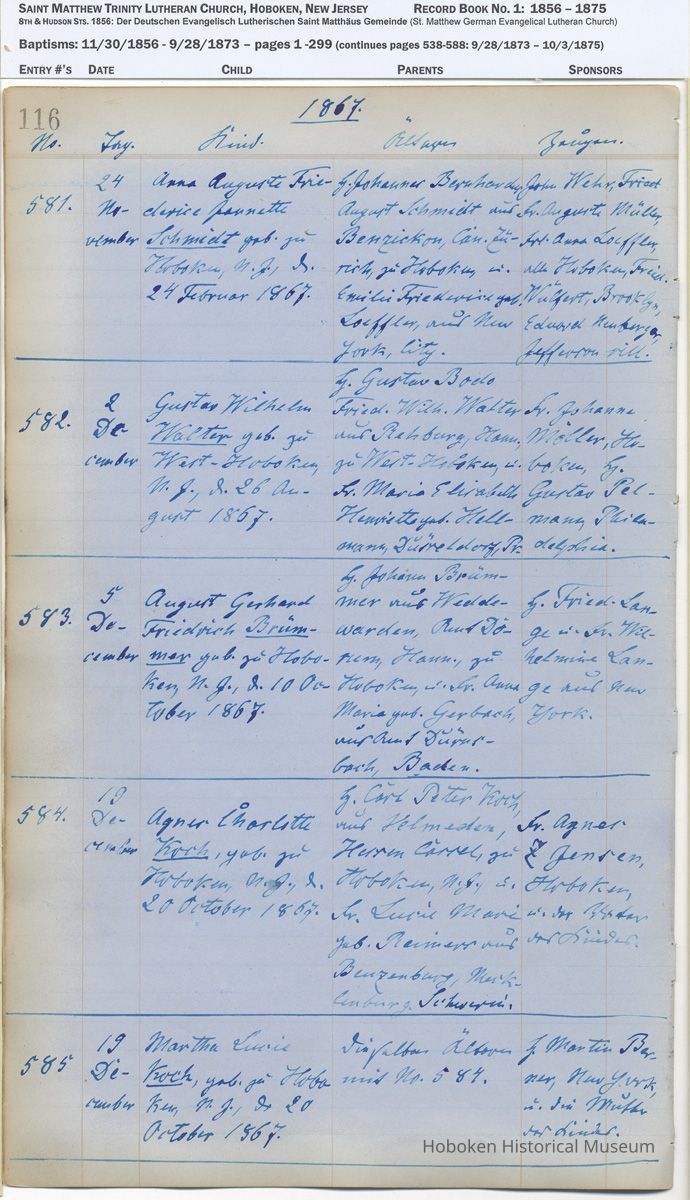 SAINT MATTHEW TRINITY LUTHERAN CHURCH, HOBOKEN, NEW JERSEY RECORD BOOK NO. 1: 1856 – 1875
8TH & HUDSON STS. 1856: Der Deutschen Evangelisch Lutherischen Saint Matthäus Gemeinde (St. Matthew German Evangelical Lutheran Church)
Baptisms: 11/30/1856 - 9/28/1873 – pages 1 -299 (continues pages 538-588: 9/28/1873 – 10/3/1875)
ENTRY #'S DATE CHILD PARENTS SPONSORS
116
1867.
No. Tag. Kind. Ältern Zeugen.
581.
24
No-
vember
Anna Auguste Frie-
dericke Jannette
Schmidt geb. zu
Hoboken, N. J., d.
24 Februar 1867.
H. Johannes Bernhard
August Schmidt aus
Benzickon, Can. Zü-
rich, zu Hoboken, u.
Emilie Friedericke geb.
Loeffler, aus New
York, City.
John Wehr, Fried
Fr. Auguste Müller,
Frl. Anna Loeffler,
alle Hoboken, Fried.
Wülfert, Brooklyn,
Eduard Neuberger,
Jefferson vill.
582.
2
De-
cember
Gustav Wilhelm
Walter geb. zu
West-Hoboken,
N. J., d. 26 Au-
gust 1867.
H. Gustav Bodo
Fried. Wilh. Walter
aus Ratzburg, Hann.,
zu West-Hoboken, u.
Fr. Maria Elisabeth
Henriette geb. Hell-
mann, Düsseldorf, Pr.
Fr. Johanne
Möller, Ho-
boken, H.
Gustav Pel-
mann, Phila-
delphia.
583.
5
De-
cember
August Gerhard
Friedrich Brüm-
mer geb. zu Hobo-
ken, N. J., d. 10 Oc-
tober 1867.
H. Johann Brüm-
mer aus Wedde-
warden, Amt Do-
rum, Hann., zu
Hoboken, u. Fr. Anna
Maria geb. Gerbach,
aus Amt
bach, Baden.
H. Fried. Lan-
ge u. Fr. Wil-
helmine Lan-
ge aus New
York.
584.
19
De-
cember
Agnes Charlotte
Koch, geb. zu
Hoboken, N. J., d.
20 October 1867.
H. Carl Peter Koch,
aus Helmeden,
Hessen Cassel, zu
Hoboken, N. J., u.
Fr. Lucie Marie
geb. Reimers aus
Benzenburg, Meck-
lenburg Schwerin.
Fr. Agnes
Jensen,
Hoboken,
u. der Vater
des Kindes.
585
19
De-
cember
Martha Lucie
Koch, geb. zu Hobo
ken, N. J., d. 20
October 1867.
Dieselben Ältern
mit No. 584.
H. Martin Ber-
ner, New York,
u. die Mutter
des Kindes.
Hoboken Historical Museum